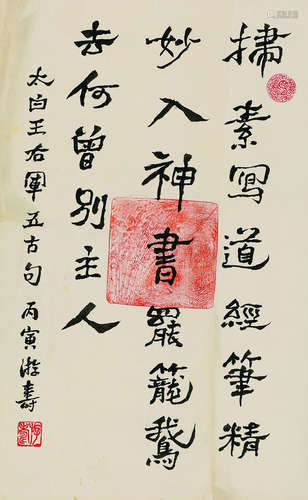 掃素寫道經筆精
妙入神書罷籠鵝
去何曾別主人
太白王右軍五古句 丙寅游壽